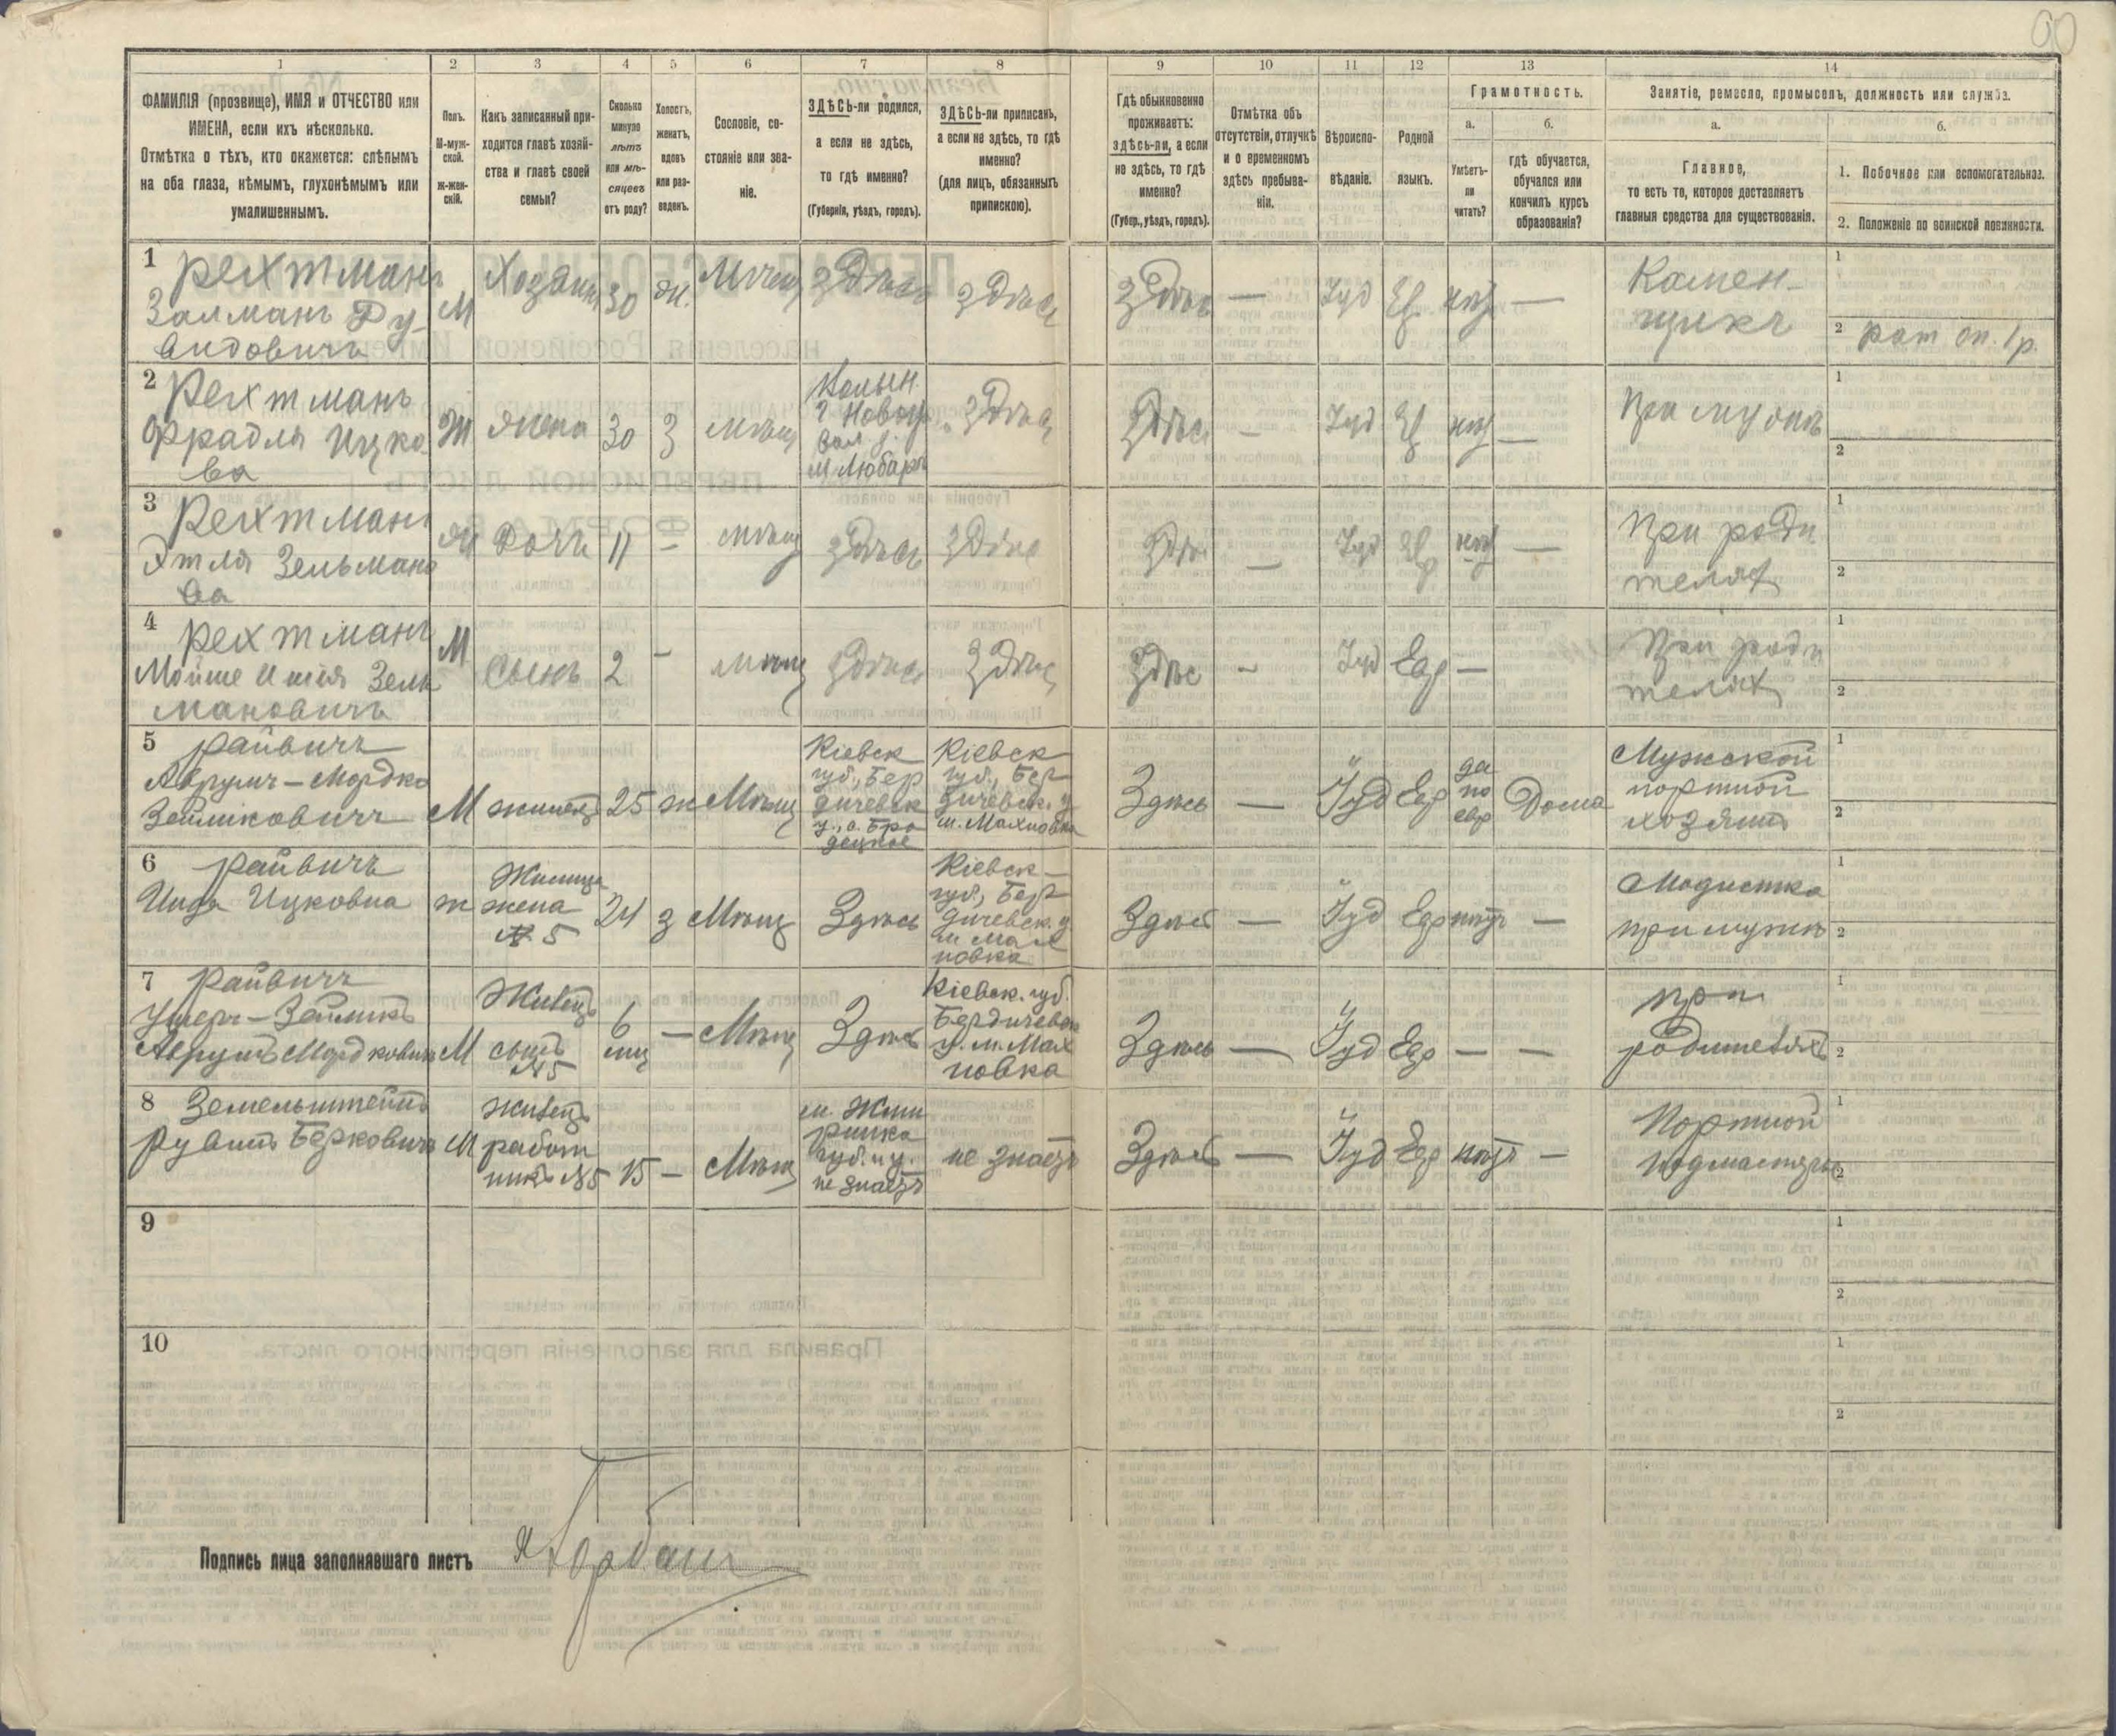 90
1
2
3
4
5
6
7
8
9
10
11
12
13
14
ФАМИЛІЯ (прозвище), ИМЯ и ОТЧЕСТВО или
ИМЕНА, если ихъ нѣсколько.
Отмѣтка о тѣхъ, кто окажется: слѣпымъ
на оба глаза, нѣмымъ, глухонѣмымъ или
умалишеннымъ.
Полъ.
М-муж-
ской.
ж-жен-
скій.
Какъ записанный при-
ходится главѣ хозяй-
ства и главѣ своей
семьи?
Сколько
минуло
лѣтъ
или мѣ-
сяцевъ
отъ роду?
Холостъ,
женатъ,
вдовъ
или раз-
веденъ.
Сословіе, со-
стояніе или зва-
ніе.
ЗДѢСЬ-ли родился,
а если не здѣсь,
то гдѣ именно?
(Губернія, уѣздъ, городъ).
ЗДѢСЬ-ли приписанъ,
а если не здѣсь, то гдѣ
именно?
(для лицъ, обязанныхъ
припискою).
Гдѣ обыкновенно
проживаетъ:
здѣсь-ли, а если
не здѣсь, то гдѣ
именно?
(Губер., уѣздъ, городъ).
Отмѣтка объ
отсутствіи, отлучкѣ
и о временномъ
здѣсь пребыва-
ніи.
Вѣроиспо-
вѣданіе.
Родной
языкъ.
Грамотность.
а.
Умѣетъ-
ли
читать?
б.
гдѣ обучается,
обучался или
кончилъ курсъ
образованія?
Занятіе, ремесло, промыселъ, должность или служба.
а.
Главное,
то есть то, которое доставляетъ
главныя средства для существованія.
б.
1. Побочное или вспомогательное.
2. Положеніе по воинской повинности.
1 Рехтманъ
Залманъ Ру-
видовичъ
М
Хозяинъ
30
ж.
Мѣщ
здѣсь
здѣсь
здѣсь
—
Іуд
Ев
нѣт
—
Камен-
щикъ
1
2 рат оп. 1 р.
2 Рехтманъ
Фрадля Ицко-
ва
Ж
жена
30
З
мѣщ
Волын.
г. Новогр
вол у.
м. Любаръ
здѣсь
здѣсь
—
Іуд
Ев
нѣт
—
При мужѣ
1
2
3 Рехтманъ
Этля Зельмано
ва
Ж
дочь
11
—
мѣщ
здѣсь
здѣсь
здѣс
—
Іуд
Евр
нѣт
—
При роди
телях
1
2
4 Рехтманъ
Мойше Зель
мановичъ
М
Сынъ
2
-
мѣщ
здѣсь
здѣсь
здѣс
—
Іуд
Евр
—
При роди
телях
1
2
5 Райвичъ
Аврумъ-Мордко
Зейликовичъ
М
жилецъ
25
ж
Мѣщ
Кіевск
губ., Бер
дичевск
у., с. Бро
децкое
Кіевск
губ., Бер
дичевск. у
м. Махновка
Здѣсь
—
Іуд
Евр
да
по
евр
Дома
Мужской
портной
хозяинъ
1
2
6 Райвичъ
Ицковна
ж
Жилица
жена
№ 5
24
з
Мѣщ
Здѣсь
Кіевск-
губ., Бер
дичевск. у
м Мах
новка
Здѣсь
—
Іуд
Евр
нѣтъ
—
Модистка
при мужѣ
1
2
7 Райвичъ
Ушеръ-Зейликъ
Аврумъ Мордковичъ
М
Жилецъ
сынъ
№5
6
мц
—
Мѣщ
Здѣсь
Кіевск. губ.
Бердичевск
у. м. Мах
новка
Здѣсь
—
Іуд
Евр
—
—
при
родителяхъ
1
2
8 Земельштейнъ
Рувинъ Берковичъ
М
Жилецъ
работ
никъ №5
15
—
Мѣщ
м. Жме
ринка
губ. и у.
не знаетъ
не знаетъ
Здѣсь
—
Іуд
Евр
нѣтъ
—
Портной
подмастерье
1
2
9
1
2
10
1
2
Подпись лица заполнявшаго листъ